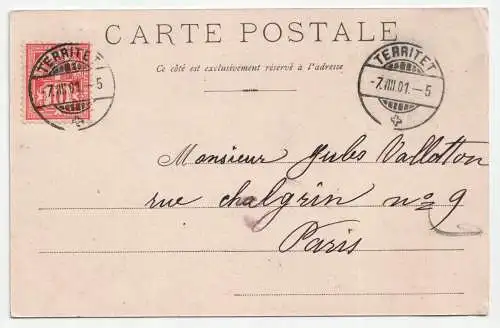 CARTE POSTALE
Ce côté est exclusivement réservé à l'adresse
TERRITET
-7.III.01.-5
TERRITET
-7.III.01.-5
Monsieur Jules Vallotton
rue chalgrin no 9
Paris